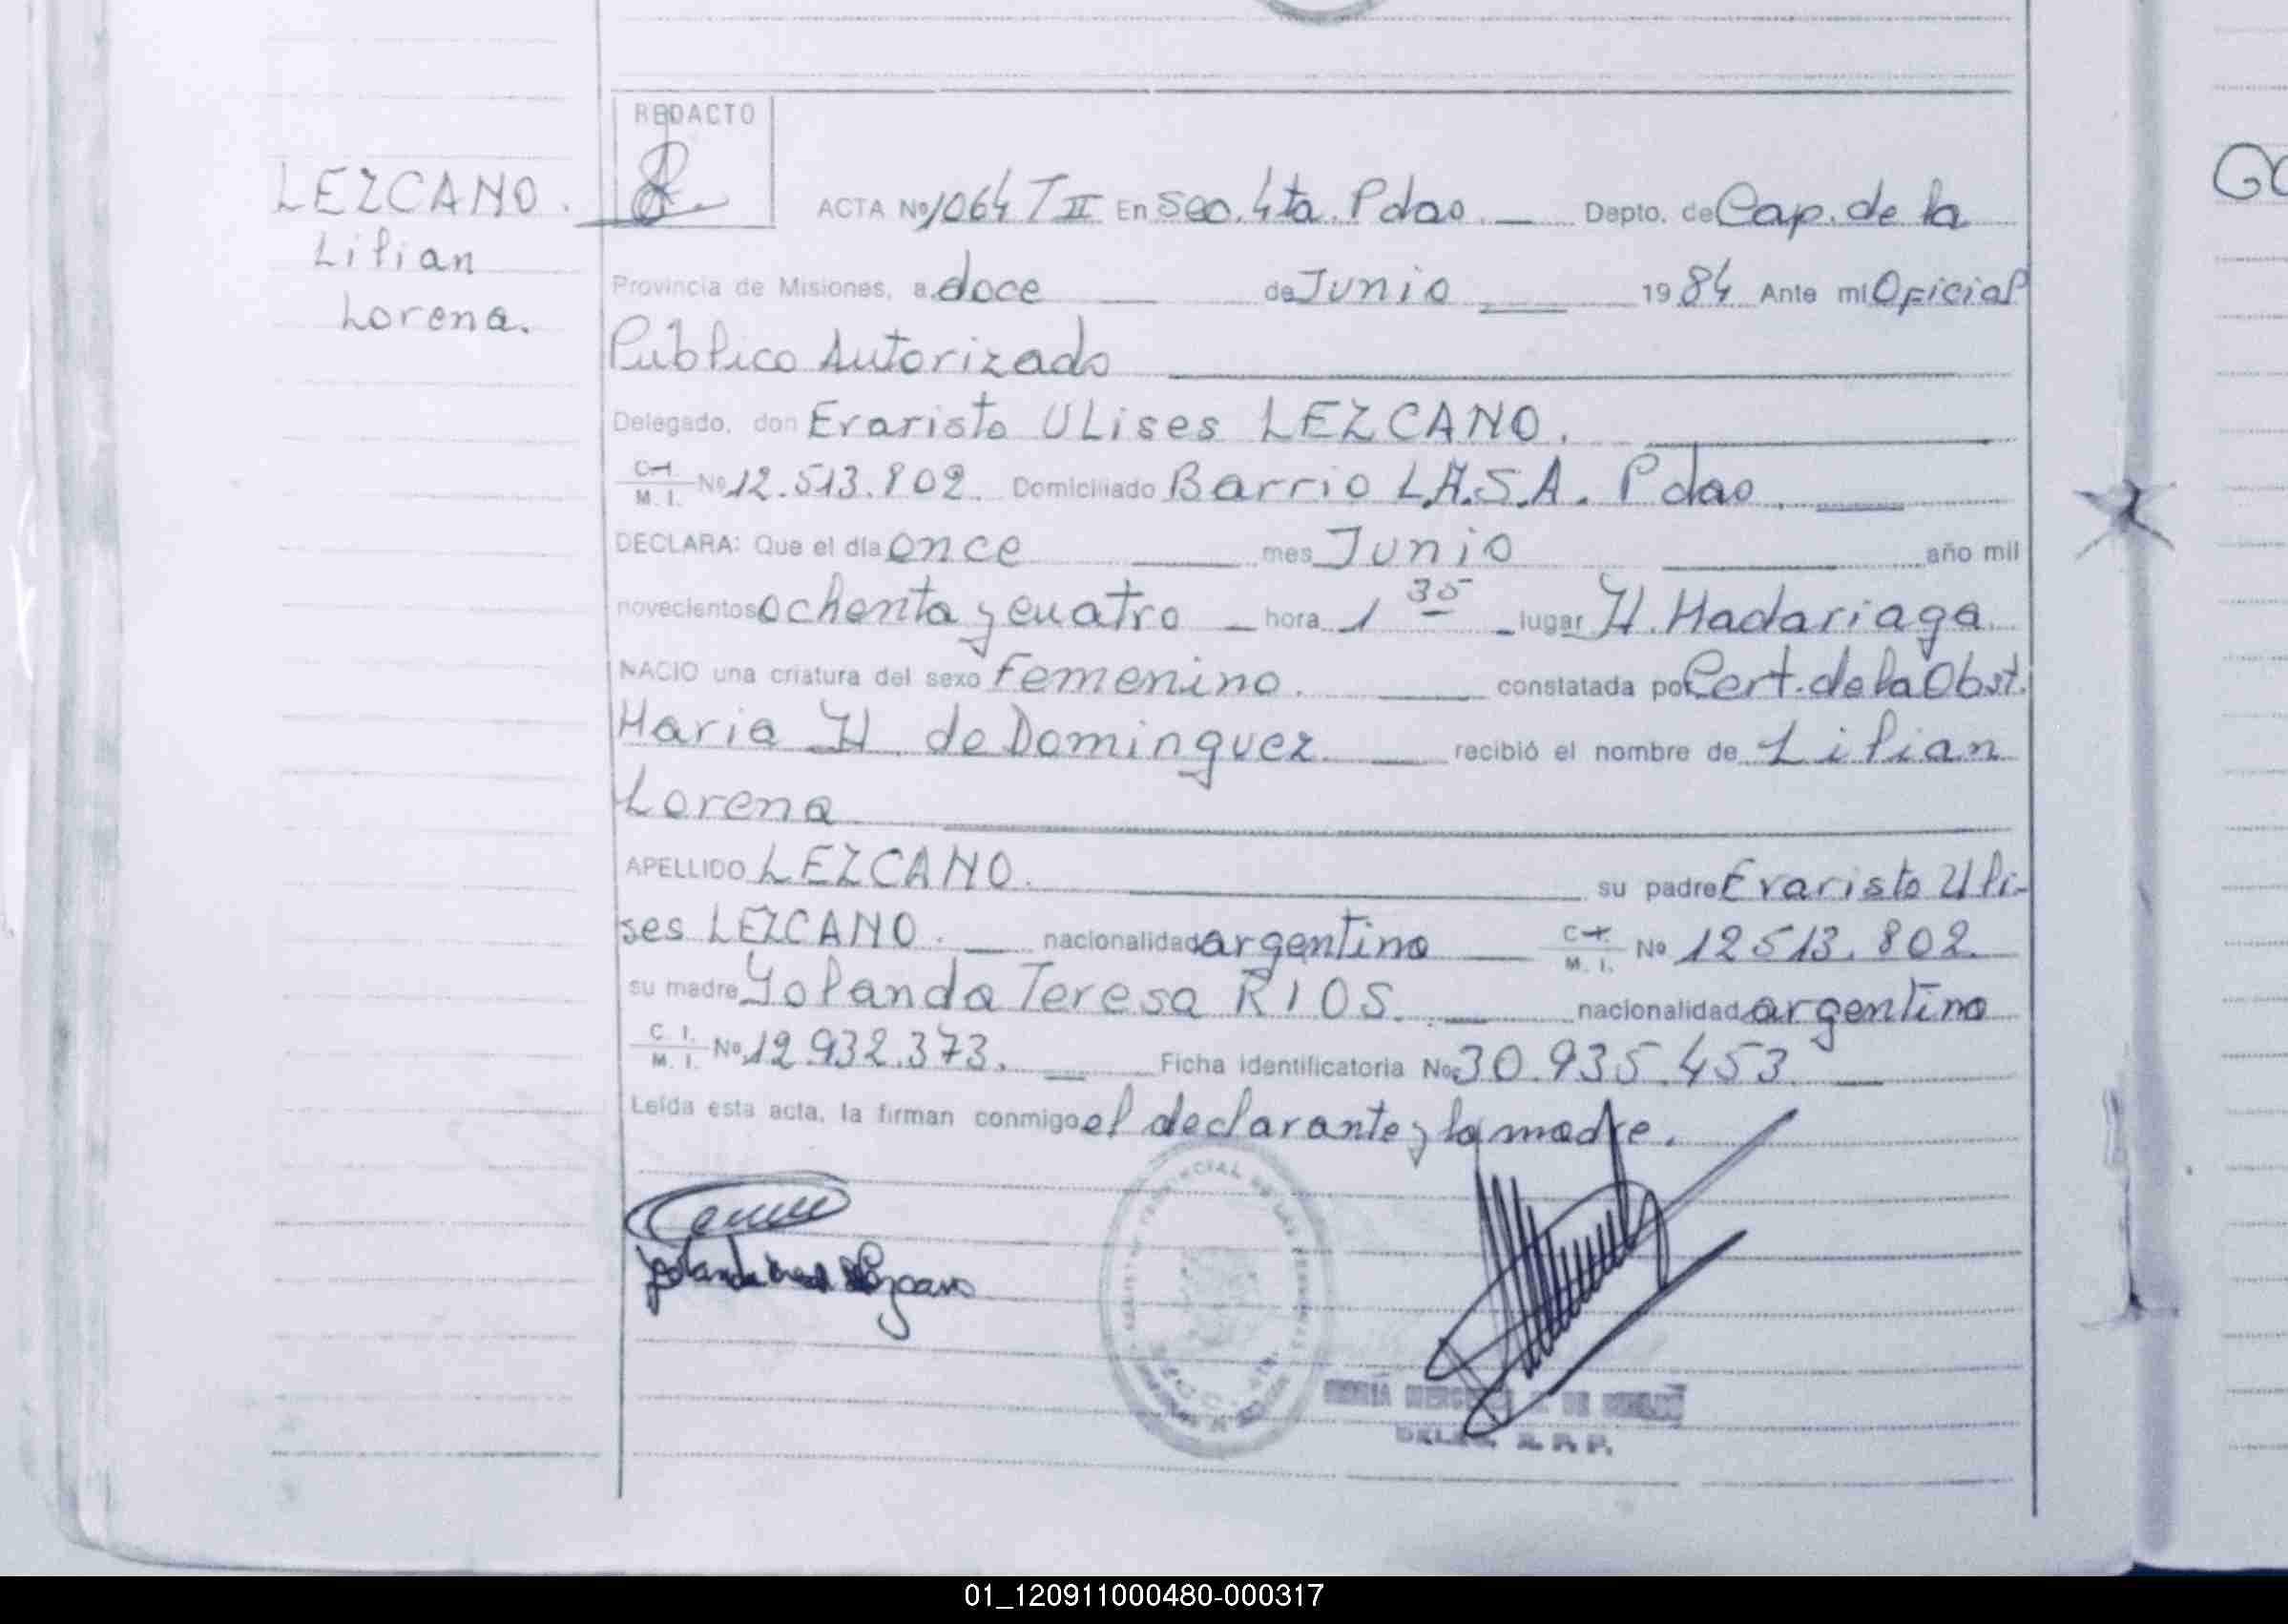 REDACTO
LEZCANO.
Lilian
Lorena.
ACTA Nº 1064 T II En Sec. 4ta. Pdas. Depto. de Cap. de la
Provincia de Misiones, a doce de Junio 1984 Ante mi Oficial
Público Autorizado
Delegado, don Evaristo ULises LEZCANO.
C.I.
M. I. Nº 12.513.802. Domiciliado Barrio I.A.S.A. Pdas.
DECLARA: Que el día once mes Junio año mil
novecientos ochenta y cuatro hora 1 35 lugar H. Madariaga.
NACIO una criatura del sexo Femenino. constatada por Cert. de la Obst.
Maria H. de Dominguez recibió el nombre de Lilian
Lorena
APELLIDO LEZCANO. su padre Evaristo Uli-
ses LEZCANO. nacionalidad argentino C.I.
M. I. Nº 12513.802.
su madre Yolanda Teresa RIOS. nacionalidad argentina
C I.
M. I. Nº 12.932.373. Ficha identificatoria Nº 30.935.453
Leída esta acta, la firman conmigo el declarante y la madre.
DELEG. R. P. P.
GO
01_120911000480-000317